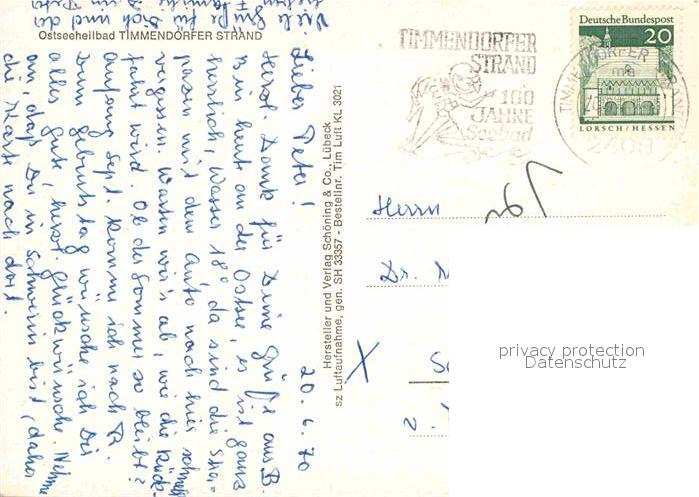 Ostseeheilbad TIMMENDORFER STRAND
Viele Grüße für Dich und die
20.6.70
Lieber Peter!
Herzl. Dank für Deine Grüße aus B.
Bin heute an der Ostsee, es ist ganz
herrlich, Wasser 18° da sind die Stra-
pazen mit dem Auto nach hier schnell
vergessen. Warten wir's ab, wie die Rück-
fahrt wird. Ob der Sommer so bleibt?
Anfang Sept. komme ich nach B.
Zum Geburtstag wünsche ich Dir
alles Gute, herzl. Glückwünsche. Nehme
an, daß Du in Schwerin bist, daher
die Karte nach dort.
Hersteller und Verlag Schöning & Co., Lübeck
sz Luftaufnahme, gen. SH 33357 - Bestellnr. Tim Luft KL 3021
TIMMENDORFER
STRAND
100
JAHRE
Seebad
Deutsche Bundespost
20
LORSCH/HESSEN
TIMMENDORFER STRAND
2408
Herrn
Dr.
privacy protection
Datenschutz